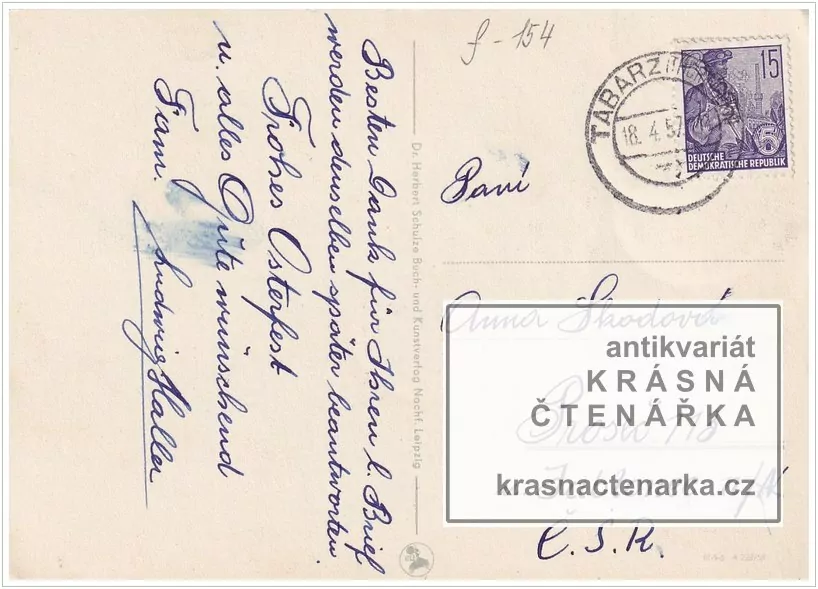 Besten Dank für Ihren l. Brief
werden denselben später beantworten.
Frohes Osterfest
u. alles Gute wünschend
Fam. Ludwig Haller
Dr. Herbert Schulze Buch- und Kunstverlag Nachf. Leipzig
f-154
TABARZ
18.4.57
15
DEUTSCHE
DEMOKRATISCHE REPUBLIK
Paní
Anna Škodová
antikvariát
KRÁSNÁ
ČTENÁŘKA
krasnactenarka.cz
Č.S.R.